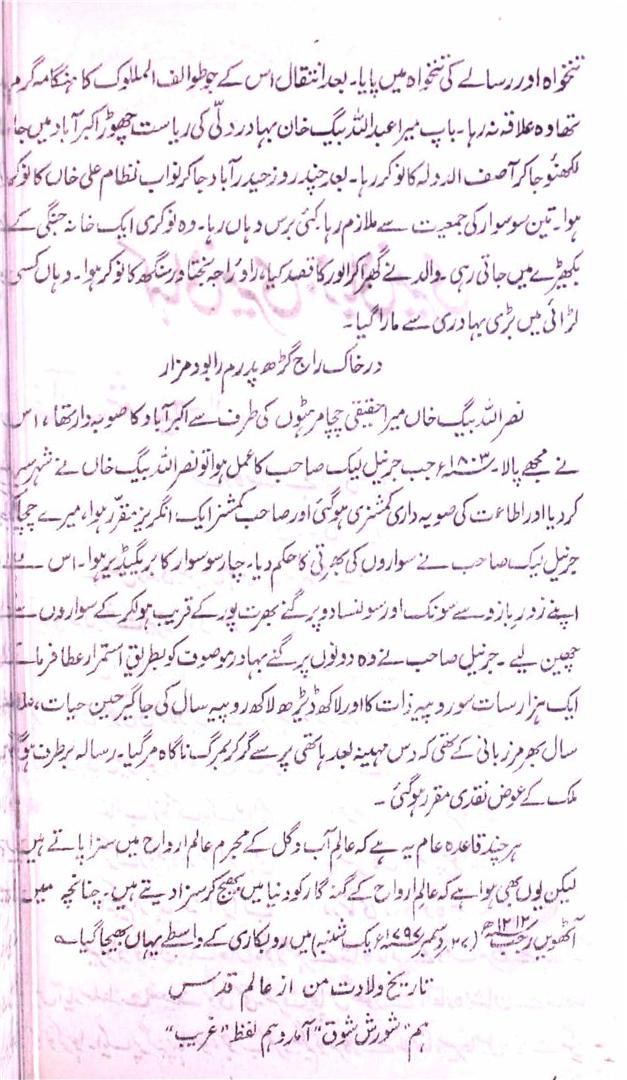 تنخواہ اور رسالے کی تنخواہ میں پایا۔ بعد انتقال اس کے جو طوائف الملوک کا ہنگامہ گرم
تھا وہ علاقہ نہ رہا۔ باپ میرا عبداللہ بیگ خان بہادر دلّی کی ریاست چھوڑ اکبر آباد میں جا
لکھنؤ جا کر آصف الدولہ کا نوکر رہا۔ بعد چند روز حیدر آباد جا کر نواب نظام علی خاں کا نوکر
ہوا۔ تین سو سوار کی جمعیت سے ملازم رہا کئی برس وہاں رہا۔ وہ نوکری ایک خانہ جنگی کے
بکھیڑے میں جاتی رہی۔ والد نے گھبرا کر الور کا قصد کیا، راؤ راجہ بختاور سنگھ کا نوکر ہوا۔ وہاں کسی
لڑائی میں بڑی بہادری سے مارا گیا۔
در خاک راج گڑھ پدرم را بود مزار
نصر اللہ بیگ خاں میرا حقیقی چچا مرہٹوں کی طرف سے اکبر آباد کا صوبہ دار تھا، اس
نے مجھے پالا۔ ۱۸۰۳ء جب جرنیل لیک صاحب کا عمل ہوا تو نصر اللہ بیگ خاں نے شہر سپر
کر دیا اور اطاعت کی صوبہ داری کمشنری ہو گئی اور صاحب کمشنر ایک انگریز مقرّر ہوا، میرے چچا
جرنیل لیک صاحب نے سواروں کی بھرتی کا حکم دیا۔ چار سو سوار کا بریگیڈیر ہوا۔ اس نے
اپنے زورِ بازو سے سونک اور سونسا دو پرگنے بھرت پور کے قریب ہولکر کے سواروں سے
چھین لیے۔ جرنیل صاحب نے وہ دونوں پرگنے بہادر موصوف کو بطریق استمرار عطا فرمائے
ایک ہزار سات سو روپیہ ذات کا اور لاکھ ڈیڑھ لاکھ روپیہ سال کی جاگیر حین حیات،
سال بھر مرزبانی کے تھی کہ دس مہینہ بعد ہاتھی پر سے گر کر بمرگ ناگاہ مر گیا۔ رسالہ برطرف ہو گ
ملک کے عوض نقدی مقرر ہو گئی۔
ہر چند قاعدہ عام یہ ہے کہ عالمِ آب و گل کے مجرم عالم ارواح میں سزا پاتے ہیں
لیکن یوں بھی ہوا ہے کہ عالم ارواح کے گنہ گار کو دنیا میں بھیج کر سزا دیتے ہیں۔ چنانچہ میں
آٹھویں رجب ۱۲۱۲ھ (۲۷؍ دسمبر ۱۷۹۷ء یک شنبہ) میں روبکاری کے واسطے یہاں بھیجا گیا ؎
تاریخ ولادت من از عالم قدس
ہم "شورش شوق" آمد و ہم لفظ "غریب"